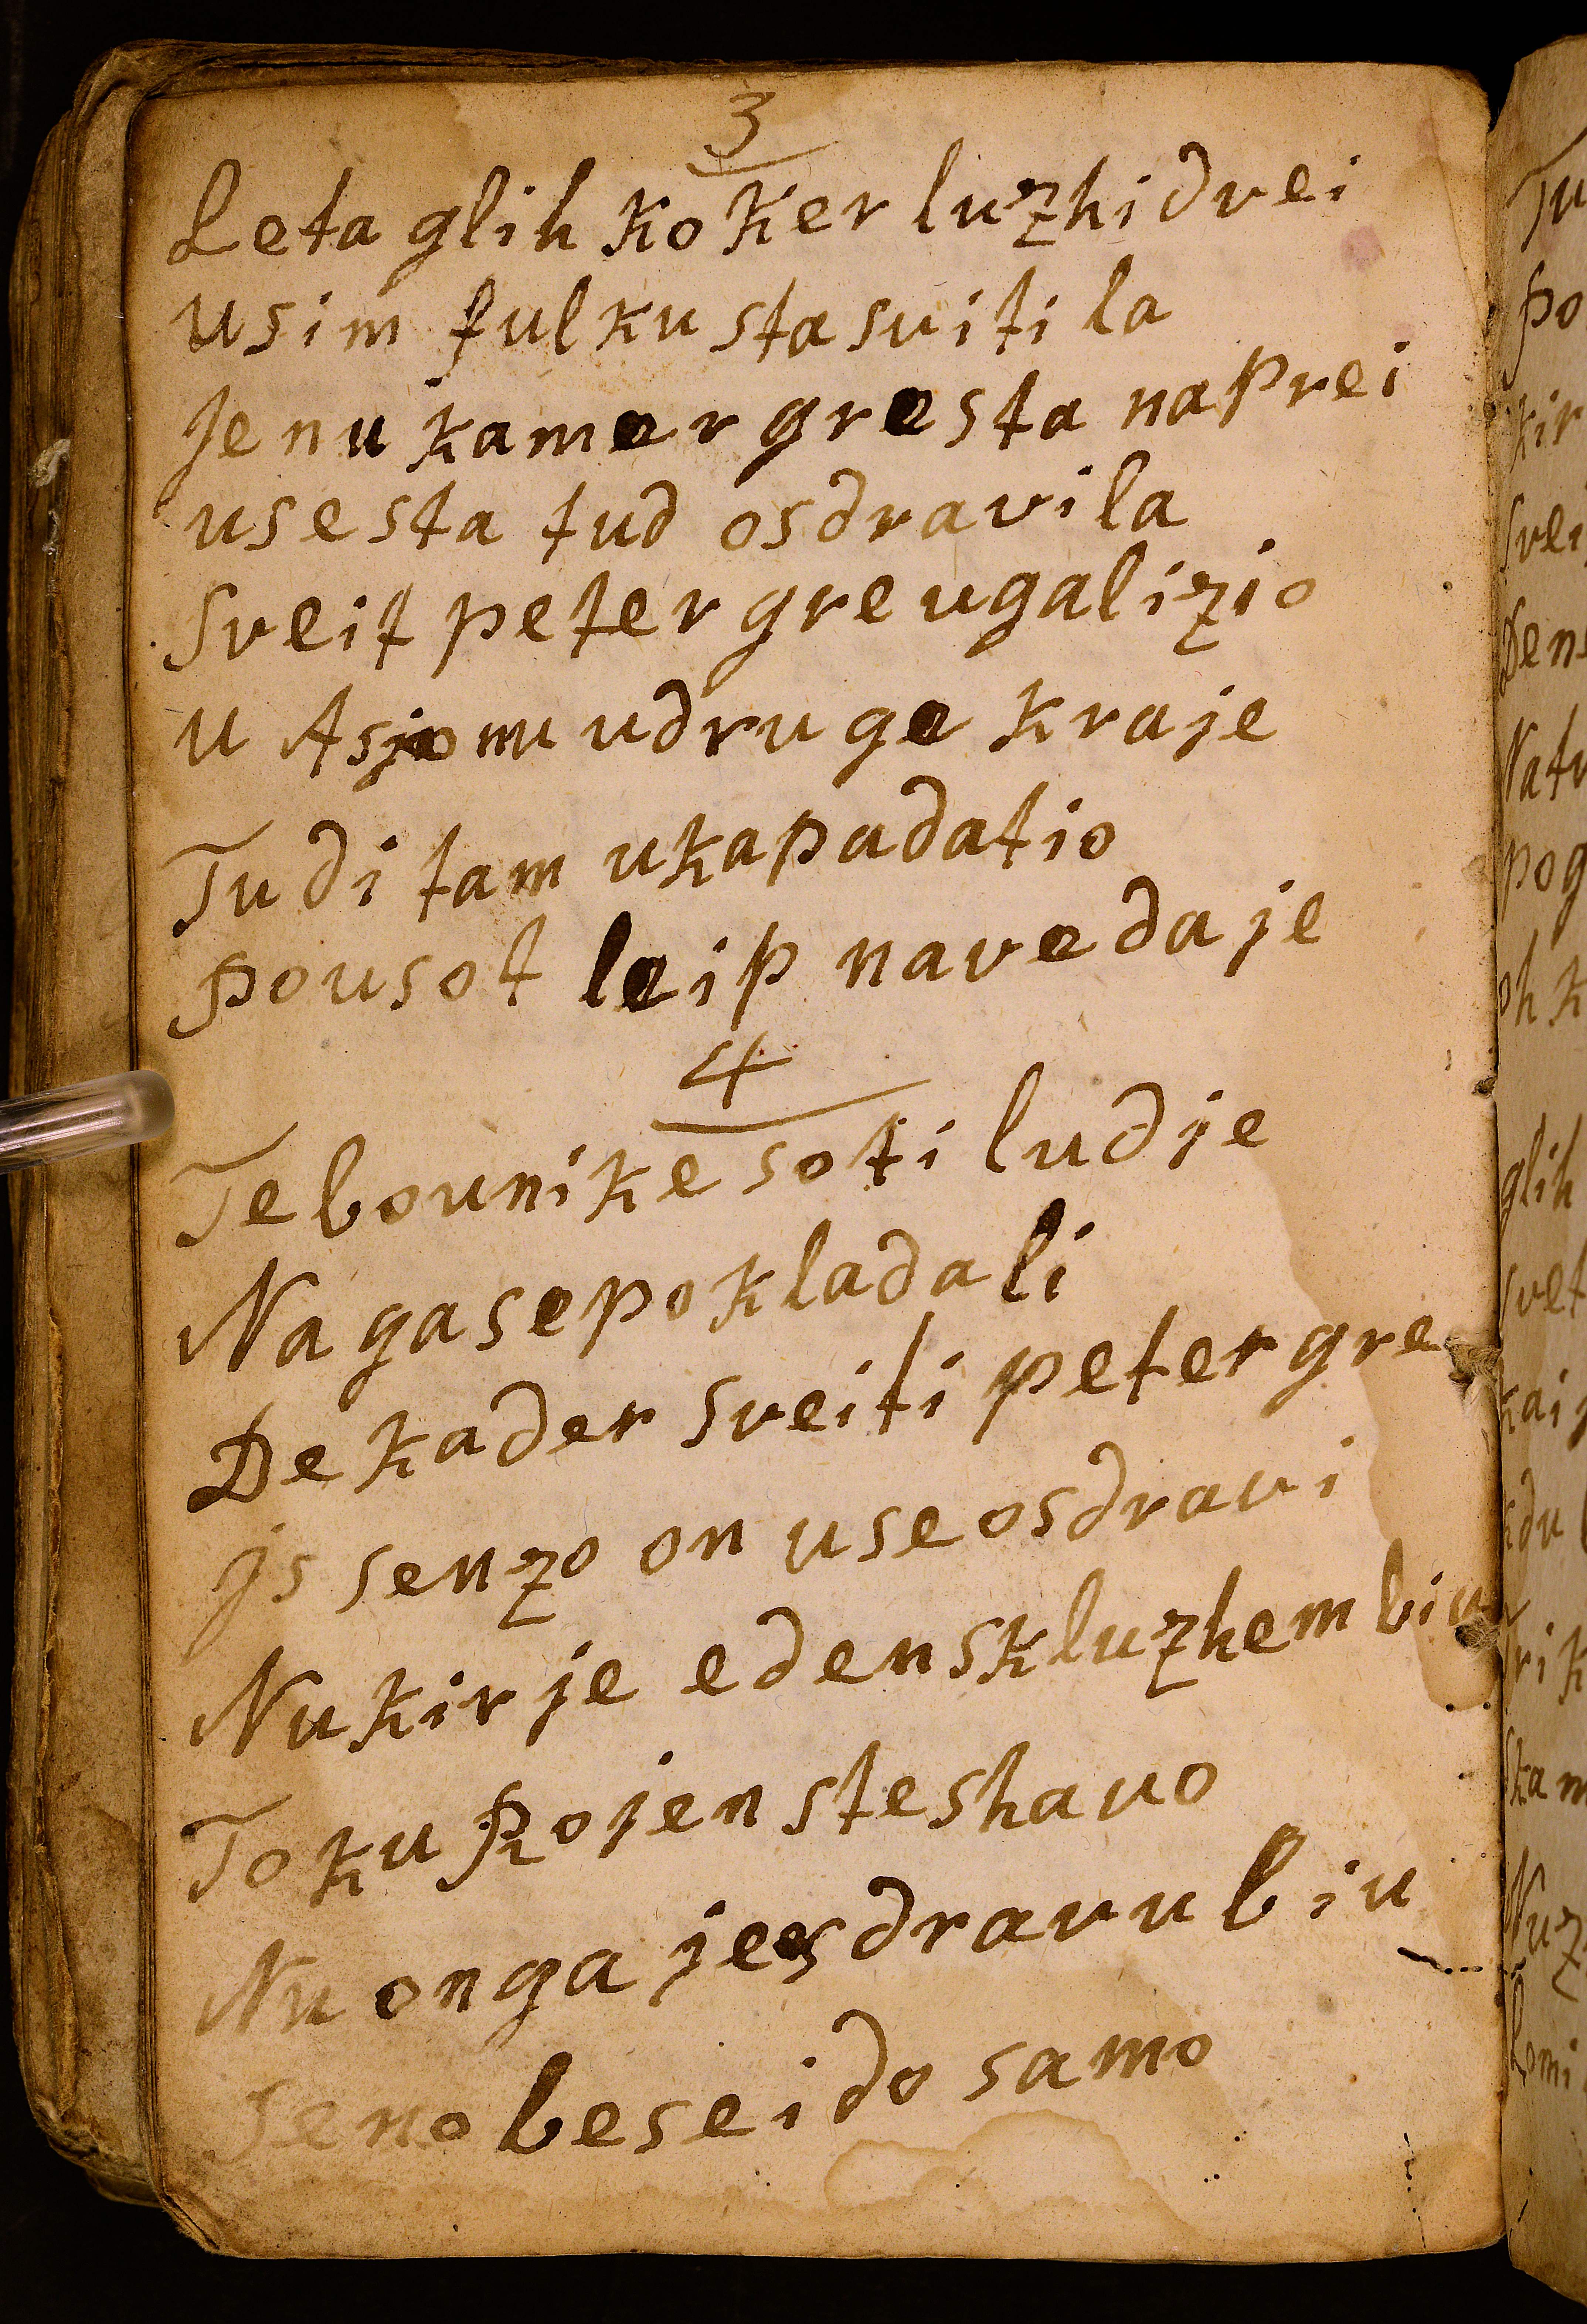 3
Leta glih koker luzhi dvei
usim fulku sta suitila
Je nu kamer gresta naprei
use sta tud osdravila
Sveit peter gre ugalizio
u Asjo mu udruge kraje
Tudi tam ukapadatio
pousot leip navedaje
4
Te bounike so ti ludje
Na ga se pokladali
De kader sveiti peter gre
is senzo on use osdravi
Nu kir je eden skluzhem biu
Toku pojen ste shavo
Nu on ga je sdravu biu
Se no beseido samo